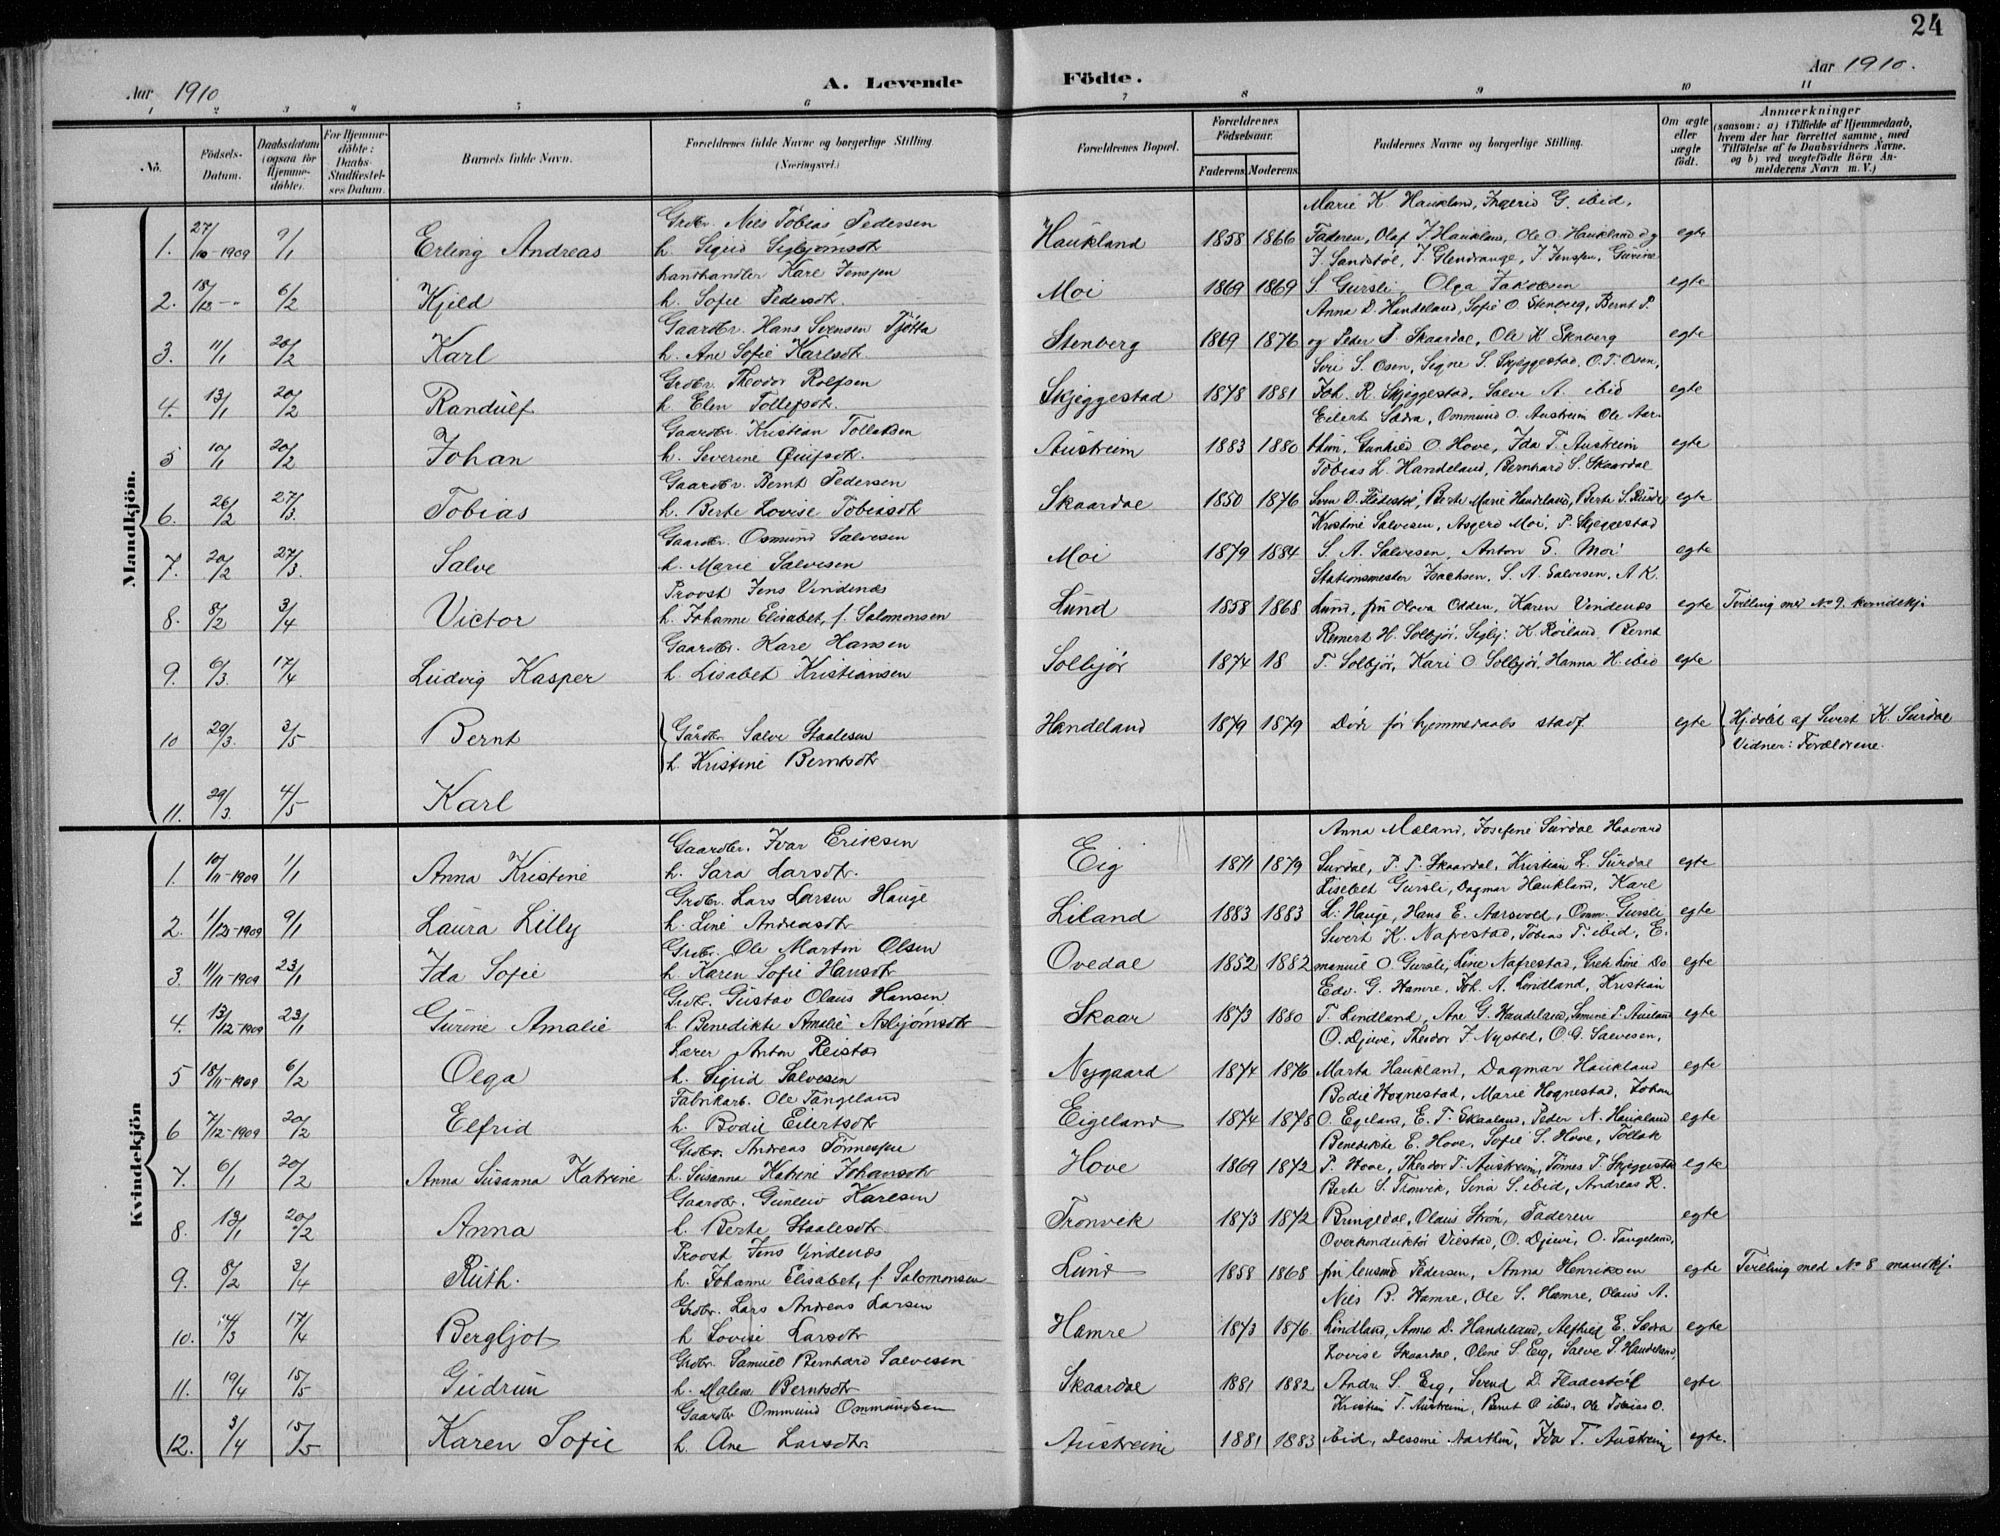 24
Aar 1910
A. Levende Födte.
Aar 1910.
1 2 3 4 5 6 7 8 9 10 11
No.
Födsels-Datum.
Daabsdatum (ogsaa for Hjemme-döbte).
For Hjemme-döbte: Daabs-Stadfæstel-ses Datum.
Barnets fulde Navn.
Forældrenes fulde Navne og borgerlige Stilling. (Næringsvei.)
Forældrenes Bopæl.
Forældrenes Födselsaar.
Faderens Moderens
Faddernes Navne og borgerlige Stilling.
Om ægte eller uægte födt.
Anmærkninger
(saasom: a) i Tilfælde af Hjemmedaab, hvem der har forrettet samme, med Tilföielse af to Daabsvidners Navne. og b) ved uægtefödte Börn An-melderens Navn m. V.)
Mandkjön.
Marie K. Haukland, Ingerid G. ibid,
1. 27/10-1909 9/1 Erling Andreas Grdbr. Nils Tobias Pedersen h. Sigrid Sigbjørnsdtr. Haukland 1858 1866 Faderen, Olaf J Haukland, Ole O. Haukland og egte
J. Sandstøl, J. Glendrange, J. Jenssen, Gurine
2. 18/12 -- 6/2 Kjeld Landhandler Karl Jenssen h. Sofie Pedersdtr. Moi 1869 1869 S Gursli, Olga Jakobsen egte
Anna D. Handeland, Sofie O Stenberg, Bernt P.
3. 11/1 20/2 Karl Gaardbr. Hans Svensen Tjøtta h. Ane Sofie Karlsdtr. Stenberg 1869 1876 og Peder P. Skaardal, Ole K Stenberg egte
Siri S. Osen, Signe S. Skjeggestad, O.T. Osen,
4. 13/1 20/2 Randulf Grdbr. Theodor Rolfsen h Elen Tollefsdtr. Skjeggestad 1878 1881 Joh. R. Skjeggestad, Salve A. ibid egte
Eilert Sædra, Ommund O. Austreim Ole Aar-
5 10/1 20/2 Johan Gaardbr. Kristian Tollaksen h. Severine Austreim 1883 1880 thun, Gunhild O. Hove, Ida T. Austreim egte
Tobias L. Handeland, Bernhard S. Skaardal
6. 26/2 27/3. Tobias Gaardbr. Bernt Pedersen h. Berte Lovise Tobiasdtr Skaardal 1850 1876 Sven D. Fladestøl, Berte Marie Handeland, Berte S. egte
Kristine Salvesen, Asgerd Moi, P. Skjeggestad
7. 20/2 27/3. Salve Gaardbr. Osmund Salvesen h. Marie Salvesen Moi 1879 1884 S. A. Salvesen, Anton S. Moi egte
Stationsmester Isachsen, S. A. Salvesen, A K.
8. 8/2 3/4 Victor Provst Jens Vindenæs h. Johanne Elisabet, f. Salomonsen Lund 1858 1868 Lund, fru Olova Odden, Karen Vindenæs egte Tvilling med No 9. kvindekj.
Reinert H. Solbjør, Sigbj: K. Røiland, Bernt
9. 6/3. 17/4 Ludvig Kasper Gaardbr. Karl Hansen h. Lisabet Kristiansen Solbjør 1874 18 T. Solbjør, Kari O Solbjør, Hanna H. ibid egte
10 29/3. 3/5 Bernt Gårdbr Salve Staalesen h. Kristine Berntsdtr Handeland 1879 1879 Døde før hjemmedaabs stadf. egte Hjdøbt af Sivert K. Surdal Vidner: Forældrene.
11. 29/3. 4/5 Karl
Kvindekjön
Anna Mæland, Josefine Surdal Haavard
1. 10/11-1909 1/1 Anna Kristine Gaardbr. Ivar Eriksen h. Sara Larsdtr. Eig 1871 1879 Surdal, P. P. Skaardal, Kristian L. Surdal egte
Lisebet Gursli, Dagmar Haukland, Karl
2. 1/12-1909 9/1 Laura Lilly Grdbr. Lars Larsen Hauge h. Line Andreasdtr Liland 1883 1883 L. Hauge, Hans E. Aarsvold, Omm. Gursli egte
Sivert K. Nafrestad, Tobias T. ibid, E.
3 11/11-1909 23/1 Ida Sofie Grdbr. Ole Martin Olsen h Karen Sofie Hansdtr Ovedal 1852 1882 manuel O Gursli, Line Nafrestad, Line Do egte
Edv. G. Hamre, Joh. A. Lindland, Kristian
4. 13/12-1909 23/1 Gurine Amalie Grdbr. Gustav Olaus Hansen. h. Benedikte Amalie Asbjørnsdtr Skaar 1873 1880 T. Lindland, Ane G. Handeland, egte
O. Djuve, Theodor J. Nysted, O. G. Salvesen,
5 18/11-1909 6/2 Olga Lærer Anton Reistad h. Sigrid Salvesen Nygaard 1874 1876 Marta Haukland, Dagmar Haukland egte
Bodil Hognestad, Marie Hognestad, Johan
6 7/12-1909 20/2 Elfrid Fabrikarb. Ole Tangeland h. Bodil Eilertsdtr Eigeland 1874 1878 O. Egeland, E. T. Skaaland, Peder N. Haukland egte
Benedikte E. Hove, Sofie S. Hove, Tollak
7. 6/1 20/2 Anna Susanna Katrine Grdbr. Andreas Tønnessen h. Susanna Katrine Johansdtr Hove 1869 1872 P. Hove, Theodor T. Austreim, Tønnes T. Skjeggestad egte
Berte S. Tronvik, Sina S. ibid, Andreas R.
8. 13/1 20/2 Anna Gaardbr. Gunleiv Karlsen h. Berte Staalesdtr Tronvik 1873 1872 Bringedal, Olaus Strøn, Faderen egte
Overkonduktør Viestad, O. Djuve, O. Tangeland,
9. 8/2 3/4 Ruth. Provst Jens Vindenæs h. Johanne Elisabet, f. Salomonsen Lund 1858 1868 fru Pedersen, Anna Henriksen egte Tvilling med No 8 mandkj.
Nils B. Hamre, Ole S. Hamre, Olaus A.
10. 14/3 17/4 Bergljot Grdbr. Lars Andreas Larsen h Lovise Larsdtr Hamre 1873 1876 Lindland, Anna D. Handeland, Alfhild E. Sædra egte
Lovise Skaardal, Oline S. Eig, Salve S. Handeland,
11. 19/4 15/5 Gudrun Grdbr. Samuel Bernhard Salvesen h. Malene Berntsdtr Skaardal 1881 1882 Andr. S. Eig, Svend D. Fladestøl egte
Kristian T. Austreim, Bernt O ibid, Ole Tobias O.
12. 3/4 15/5 Karen Sofie Gaardbr Ommund Ommundsen h. Ane Larsdtr. Austreim 1881 1883 ibid, Dessine Aarthun, Ida T. Austreim egte.